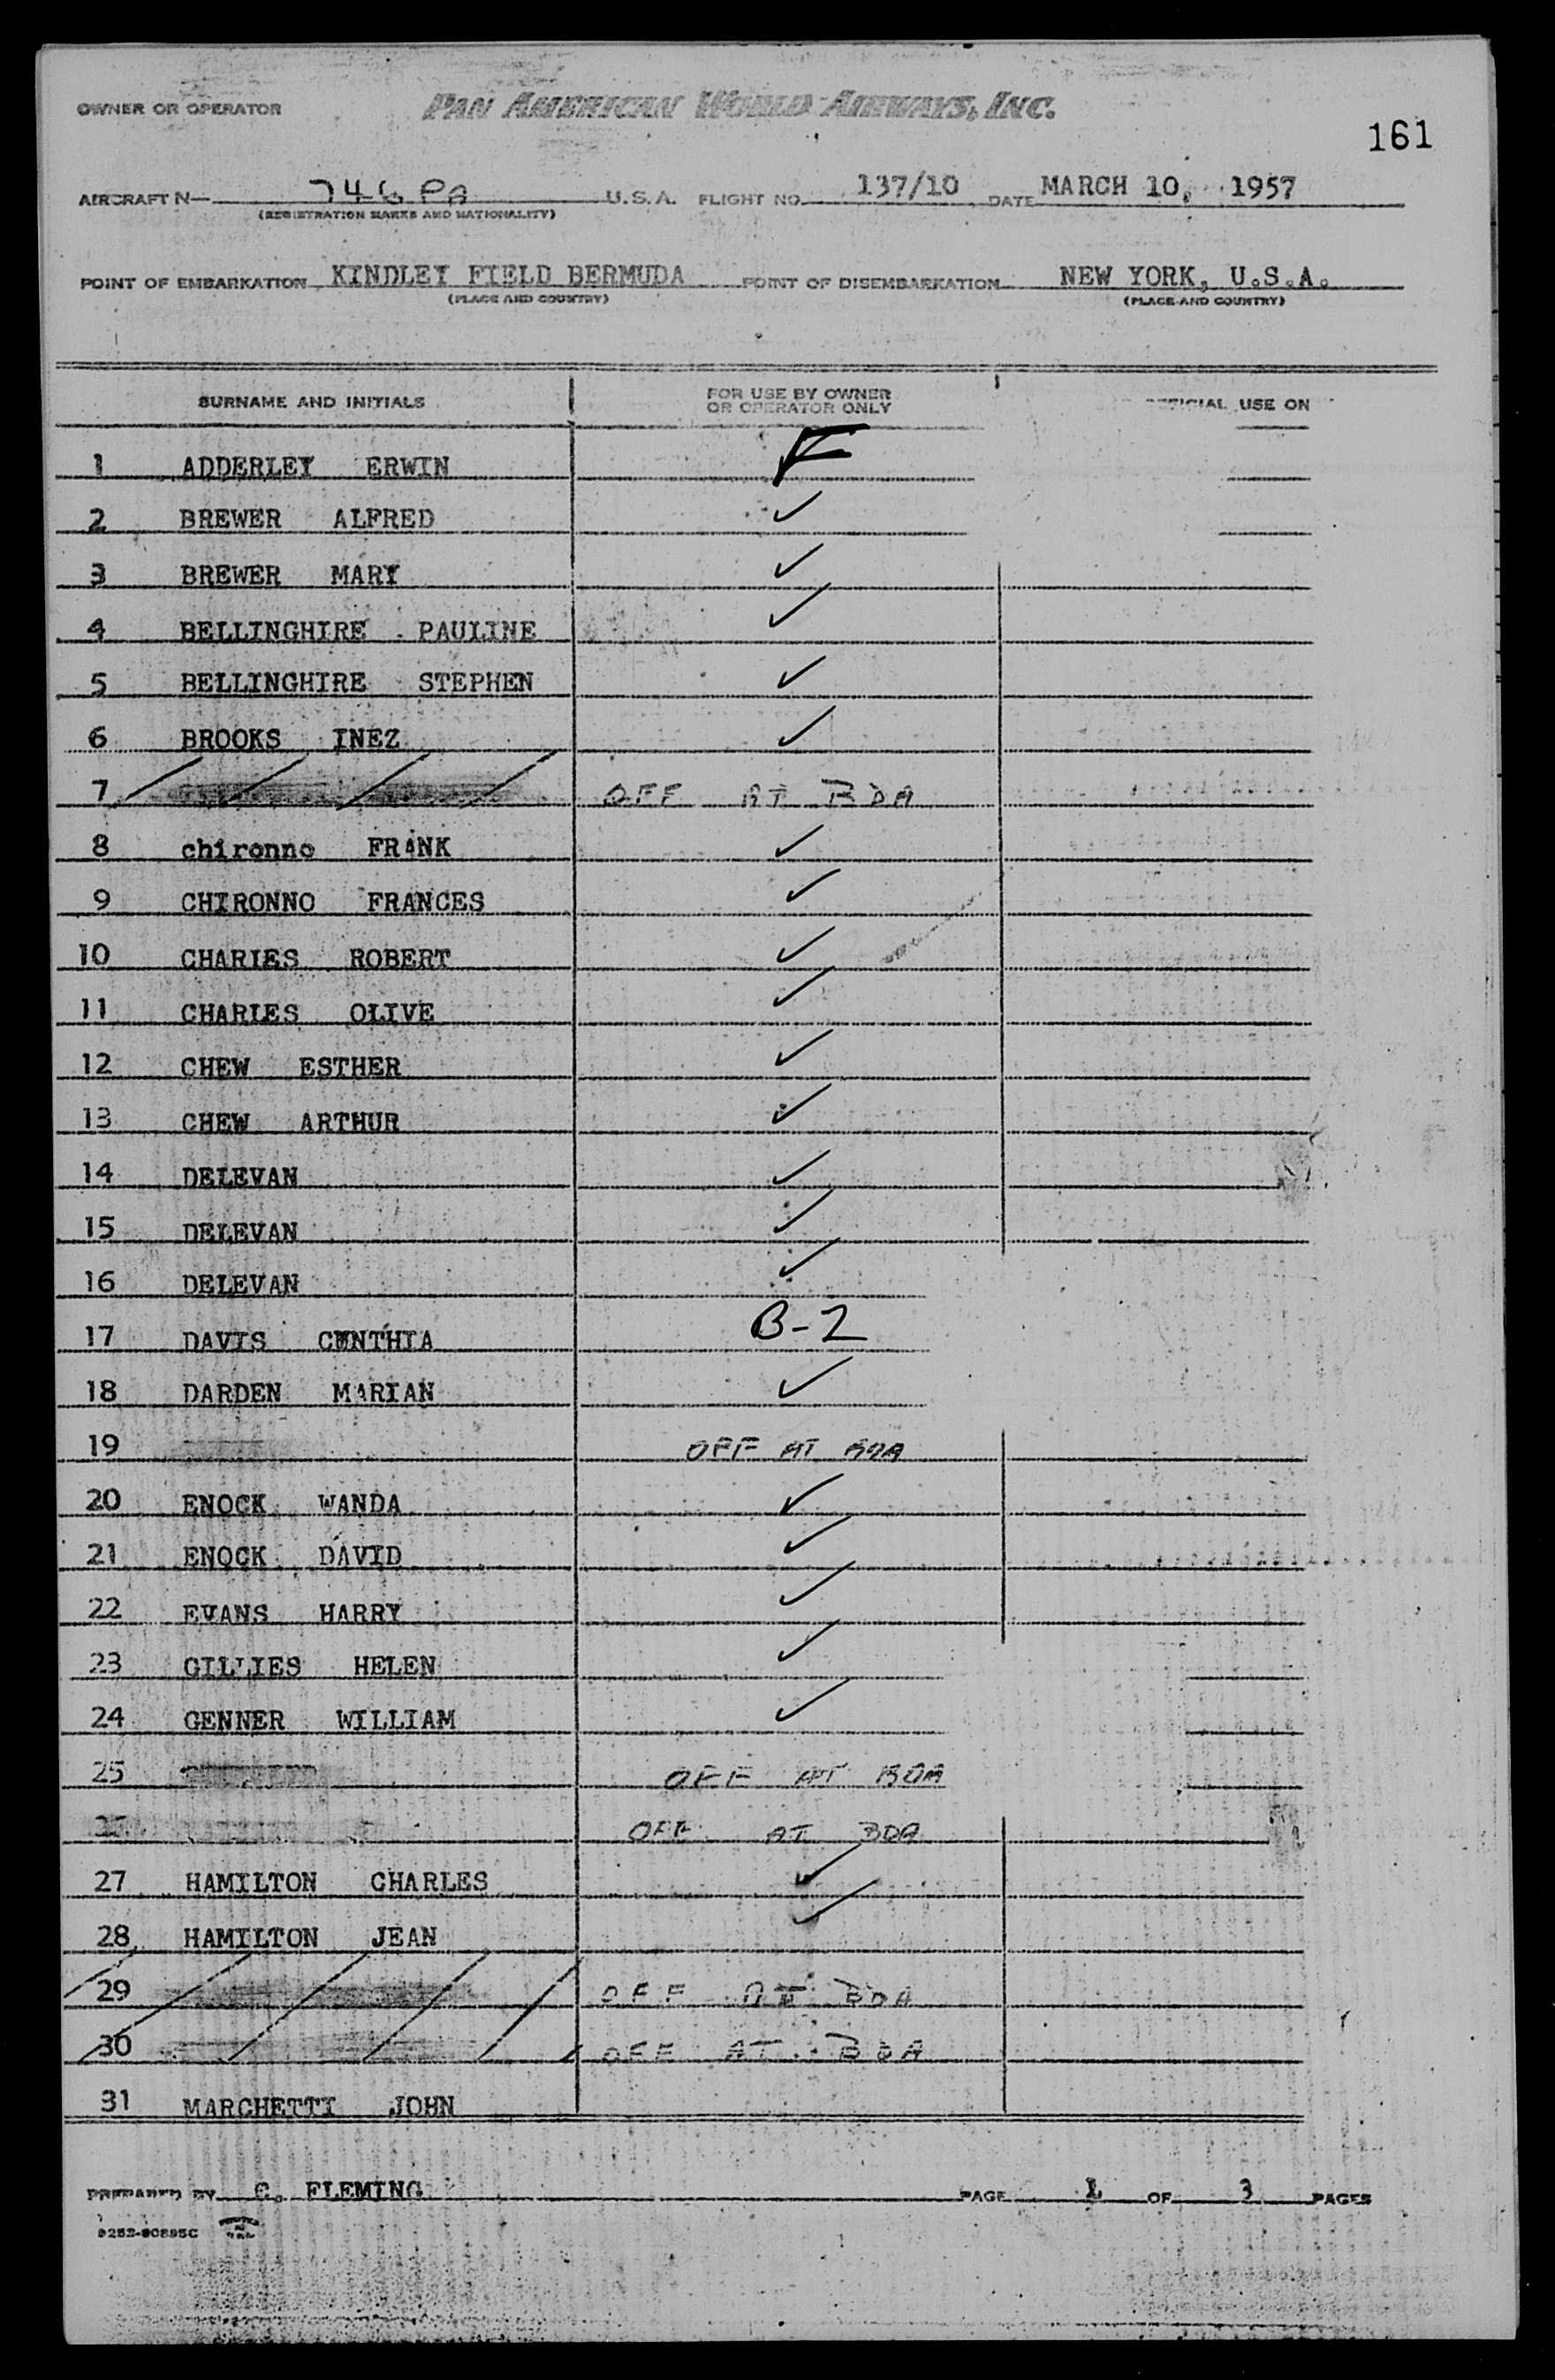 OWNER OR OPERATOR PAN AMERICAN WORLD AIRWAYS, INC.
161
AIRCRAFT N— 746 PA U.S.A. FLIGHT NO. 137/10 DATE MARCH 10, 1957
(REGISTRATION MARKS AND NATIONALITY)
POINT OF EMBARKATION KINDLEY FIELD BERMUDA POINT OF DISEMBARKATION NEW YORK, U.S.A.
(PLACE AND COUNTRY) (PLACE AND COUNTRY)
SURNAME AND INITIALS FOR USE BY OWNER OR OPERATOR ONLY OFFICIAL USE ON
1 ADDERLEY ERWIN F
2 BREWER ALFRED ✓
3 BREWER MARY ✓
4 BELLINGHIRE PAULINE ✓
5 BELLINGHIRE STEPHEN ✓
6 BROOKS INEZ ✓
7 OFF AT BDA
8 chironno FRANK ✓
9 CHIRONNO FRANCES ✓
10 CHARLES ROBERT ✓
11 CHARLES OLIVE ✓
12 CHEW ESTHER ✓
13 CHEW ARTHUR ✓
14 DELEVAN ✓
15 DELEVAN ✓
16 DELEVAN ✓
17 DAVIS B-2
18 DARDEN MARIAN ✓
19 OFF AT BDA
20 ENOCK WANDA ✓
21 ENOCK DAVID ✓
22 EVANS HARRY ✓
23 GILLIES HELEN ✓
24 GENNER WILLIAM ✓
25 OFF AT BDA
OFF AT BDA
27 HAMILTON CHARLES ✓
28 HAMILTON JEAN ✓
29 OFF AT BDA
30 OFF AT BDA
31 MARCHETTI JOHN
PREPARED BY C. FLEMING PAGE 1 OF 3 PAGES